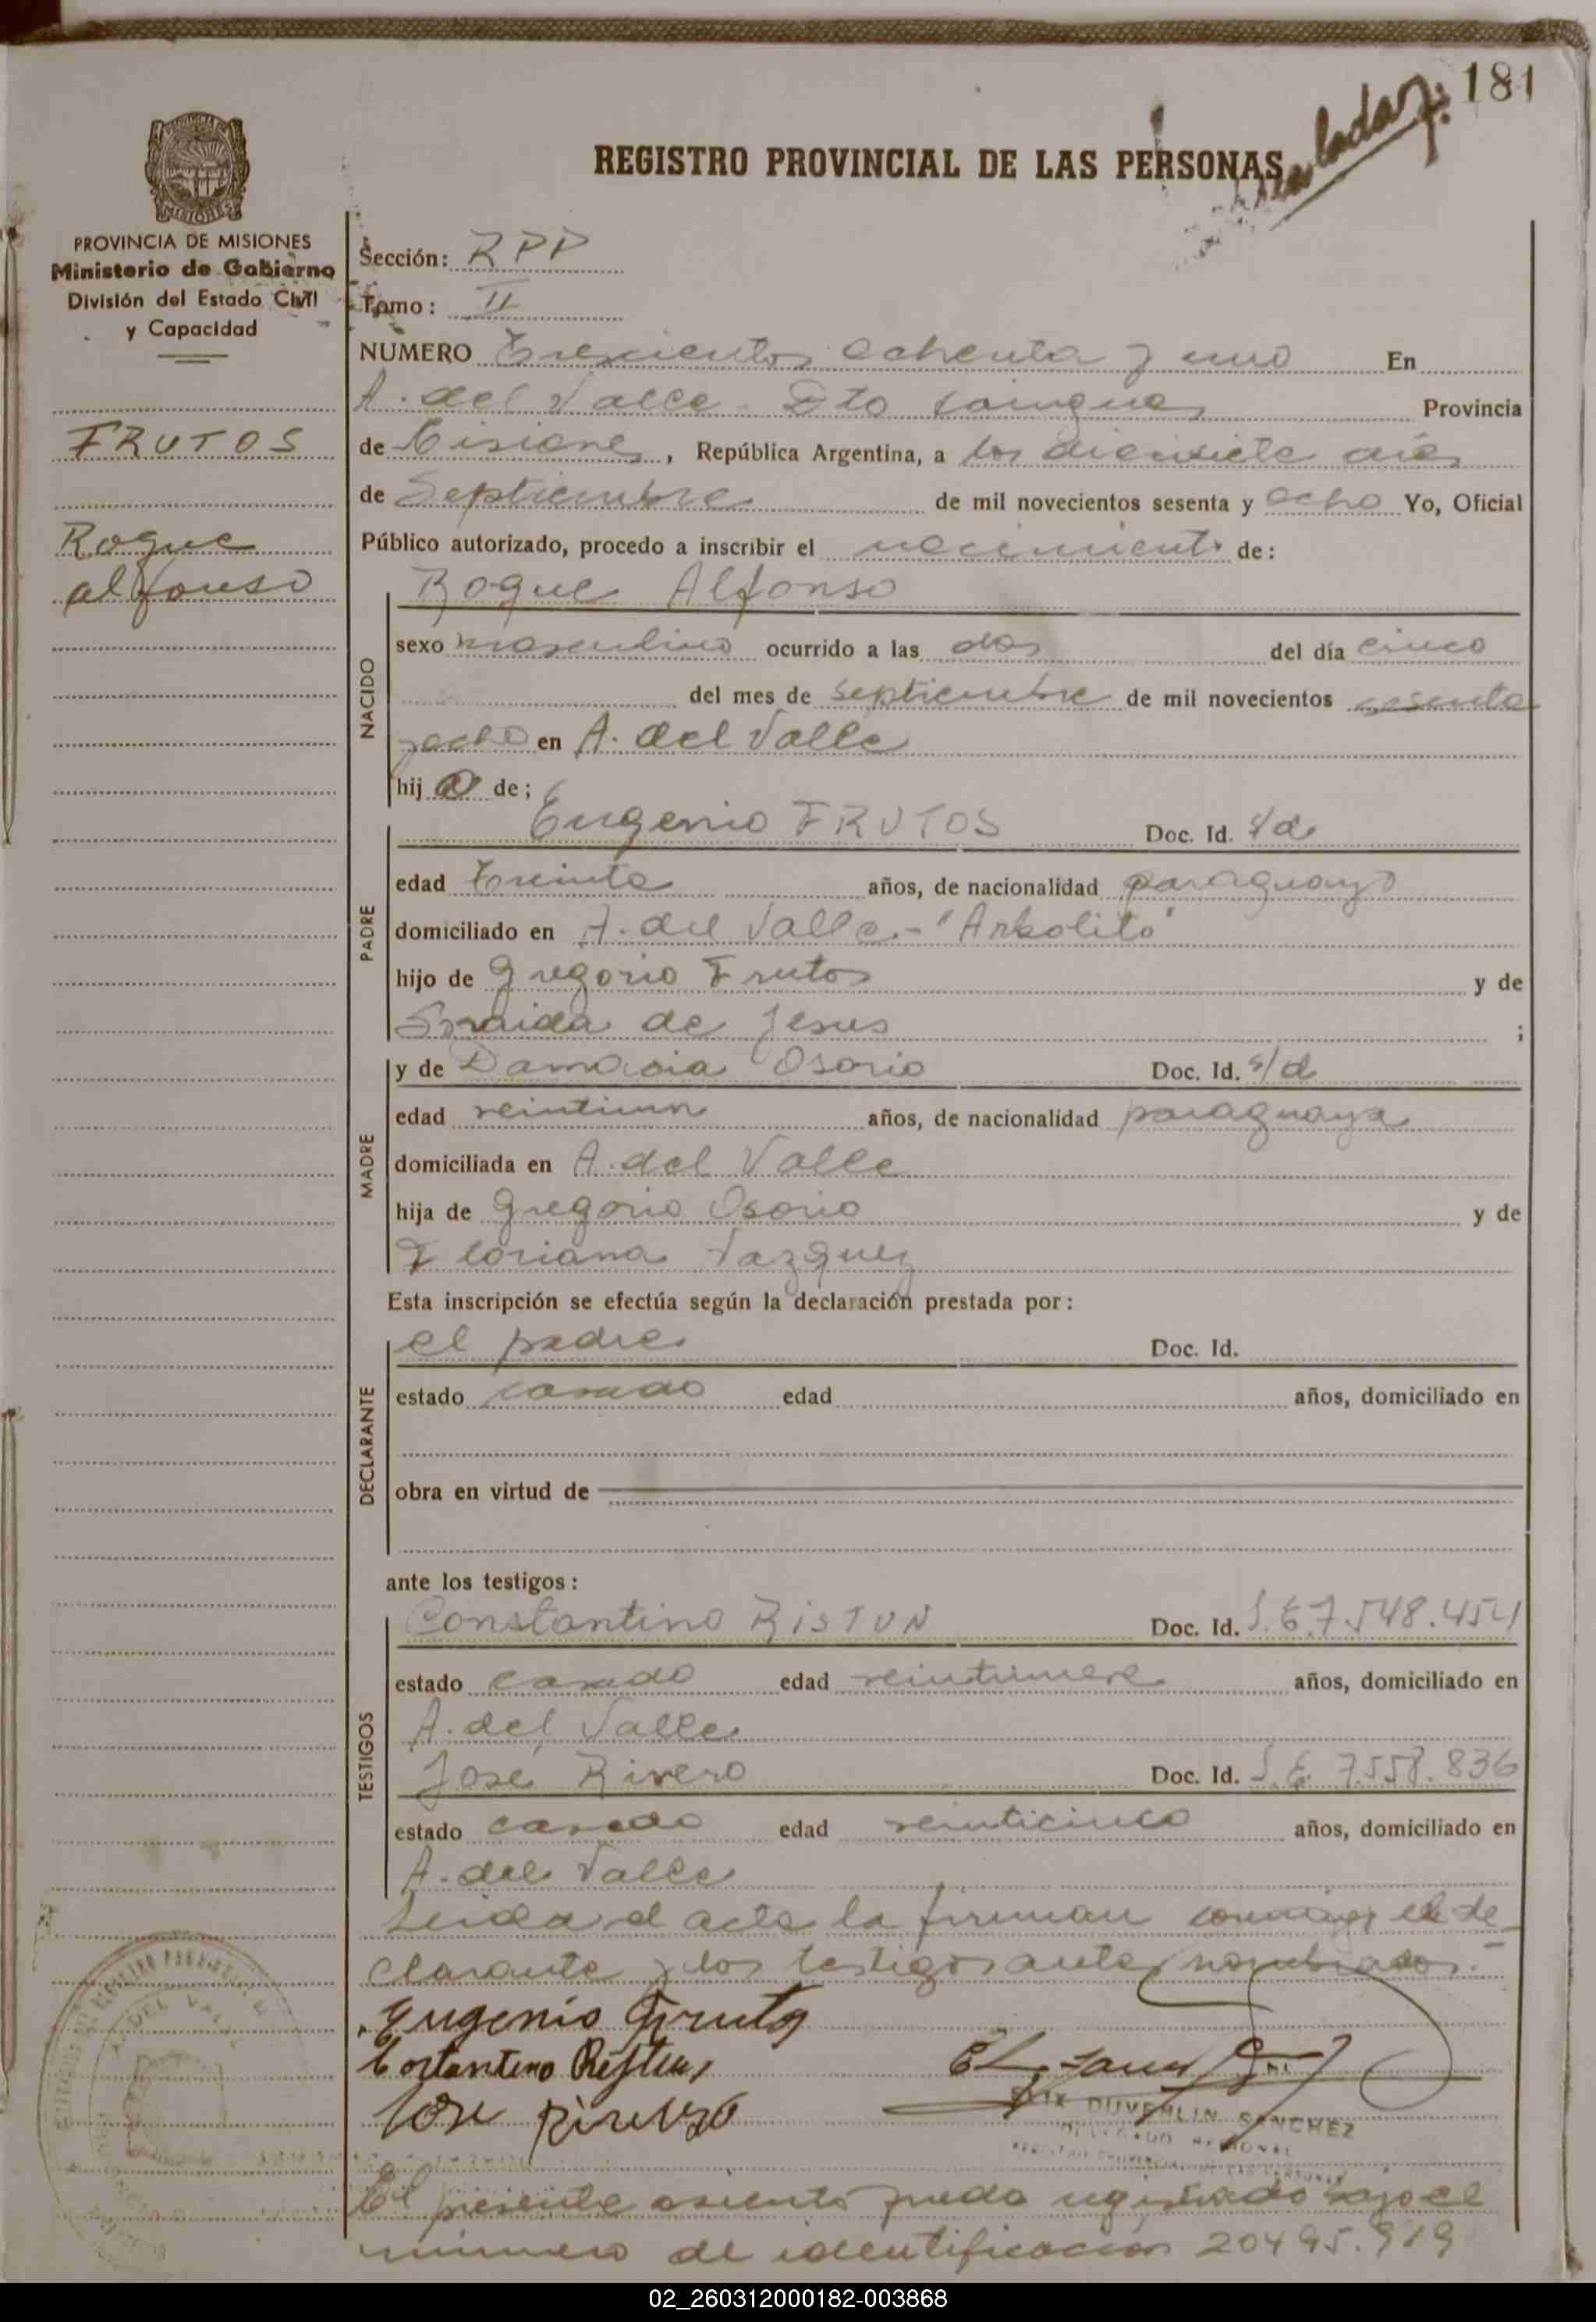 181
REGISTRO PROVINCIAL DE LAS PERSONAS
PROVINCIA DE MISIONES
Ministerio de Gobierno
División del Estado Civil
y Capacidad
FRUTOS
Roque
alfonso
Sección: RPP
Tomo: II
NUMERO Trescientos ochenta y uno En
A. del Valle - Dto Cainguas Provincia
de Misiones, República Argentina, a los diecisiete dias
de Septiembre de mil novecientos sesenta y ocho Yo, Oficial
Público autorizado, procedo a inscribir el nacimiento de:
NACIDO
Roque Alfonso
sexo masculino ocurrido a las dos del día cinco
del mes de Septiembre de mil novecientos sesenta
y ocho en A. del Valle
hij o de;
PADRE
Eugenio FRUTOS Doc. Id. s/d
edad Treinta años, de nacionalidad paraguayo
domiciliado en A. del Valle - "Arbolito"
hijo de Gregorio Frutos y de
de Jesus ;
MADRE
y de Damasia Osorio Doc. Id. s/d
edad veintiun años, de nacionalidad paraguaya
domiciliada en A. del Valle
hija de Gregorio Osorio y de
Floriana Vazquez
Esta inscripción se efectúa según la declaración prestada por:
DECLARANTE
el padre Doc. Id.
estado casado edad años, domiciliado en
obra en virtud de
ante los testigos:
TESTIGOS
Constantino RISTUN Doc. Id. 7.548.454
estado casado edad años, domiciliado en
A. del Valle
José Rivero Doc. Id. 7.558.836
estado casado edad veinticinco años, domiciliado en
A. del Valle
Leida el acta la firman conmigo el de-
clarante y los testigos antes nombrados.-
Eugenio Fruto
José
DUVERLIN SANCHEZ
El presente asiento queda registrado bajo el
número de identificacion 20495.919
02_260312000182-003868